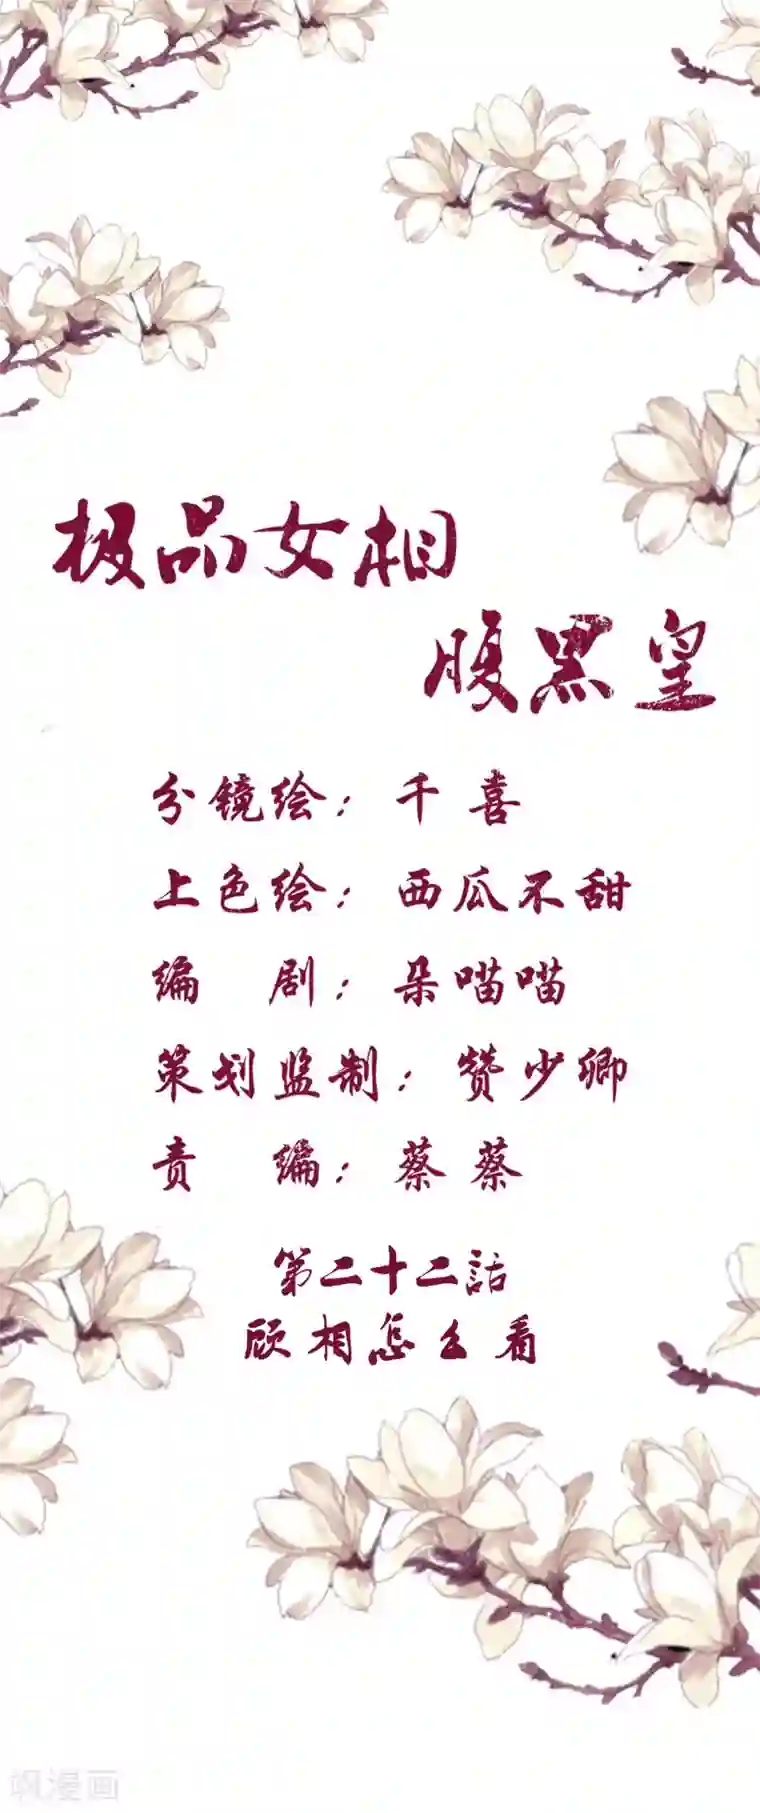 极品女相
腹黑皇
分镜绘：千喜
上色绘：西瓜不甜
编剧：朵喵喵
策划监制：赞少卿
责编：蔡蔡
第二十二話
顾相怎么看
飒漫画